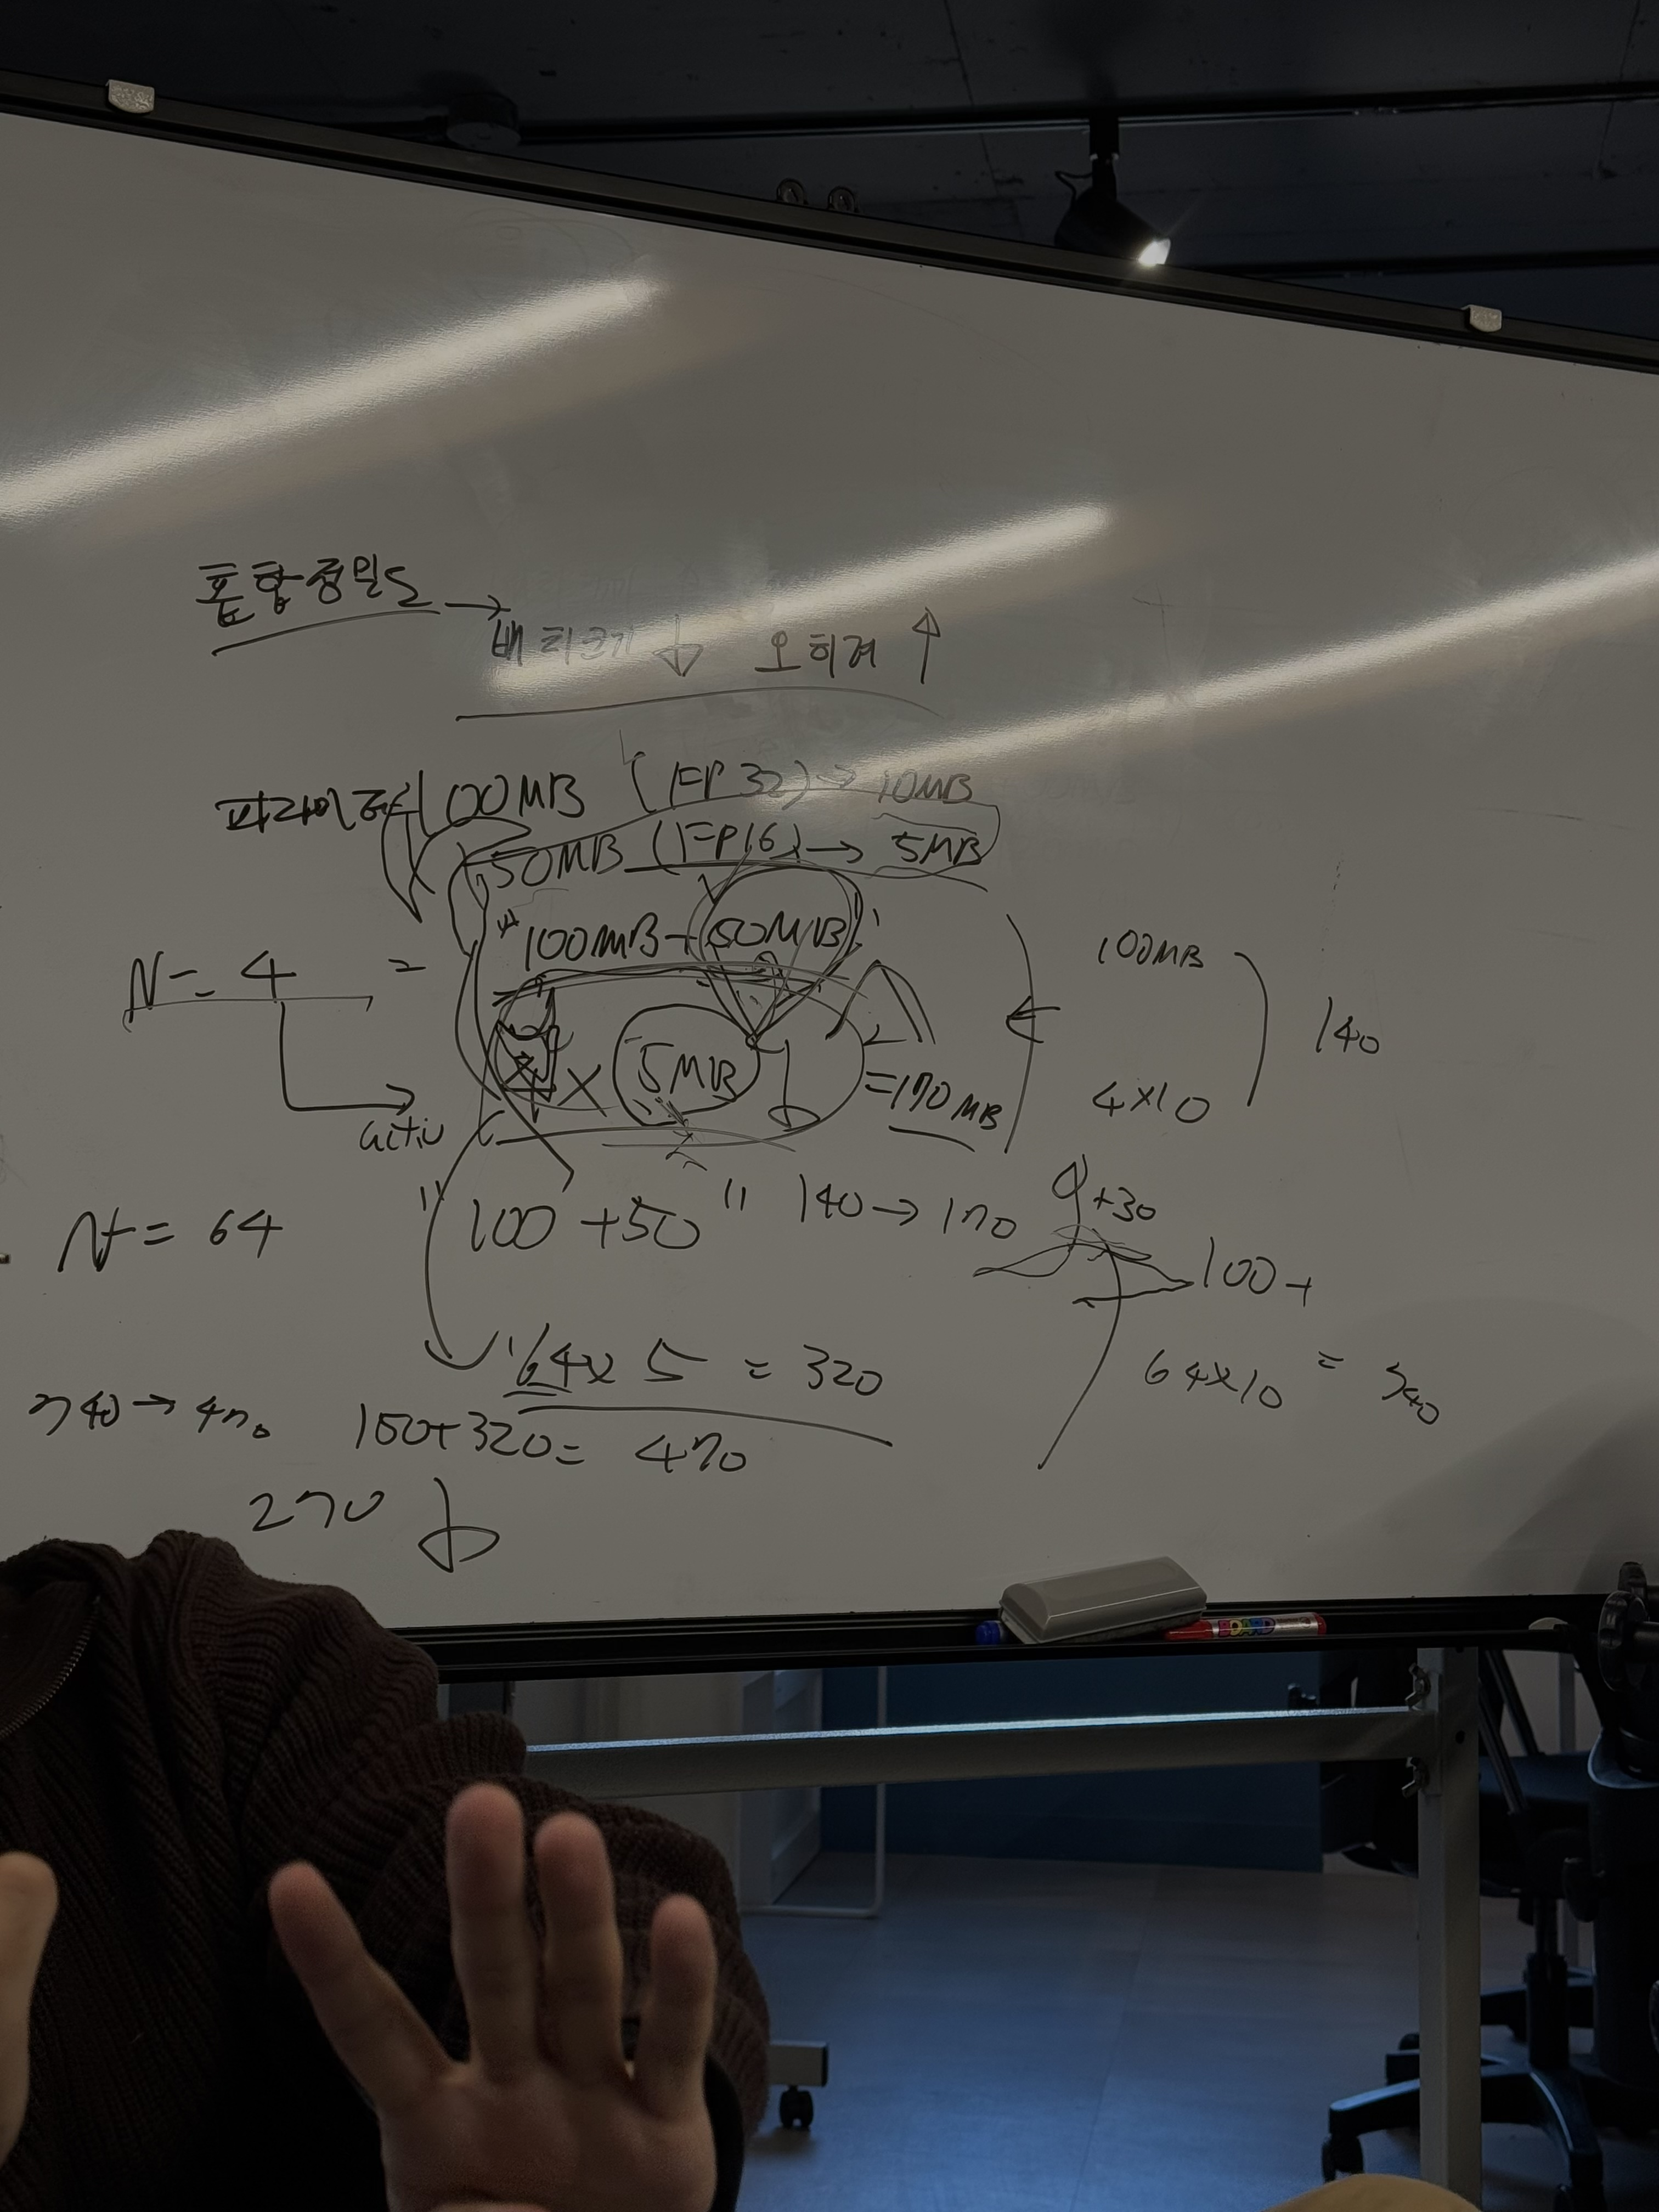 혼합정밀도 →
배치크기 ↓ 오히려 ↑
파라미터 100MB (FP32) → 10MB
50MB (FP16) → 5MB
100MB + 50MB
N = 4 =
100MB
140
4 × 5MB = 170MB
4×10
activ
N = 64
"100 + 50" 140 → 170
+30
100 +
64 × 5 = 320
64×10 = 740
740 → 470
150 + 320 = 470
270 ↓
BOARD